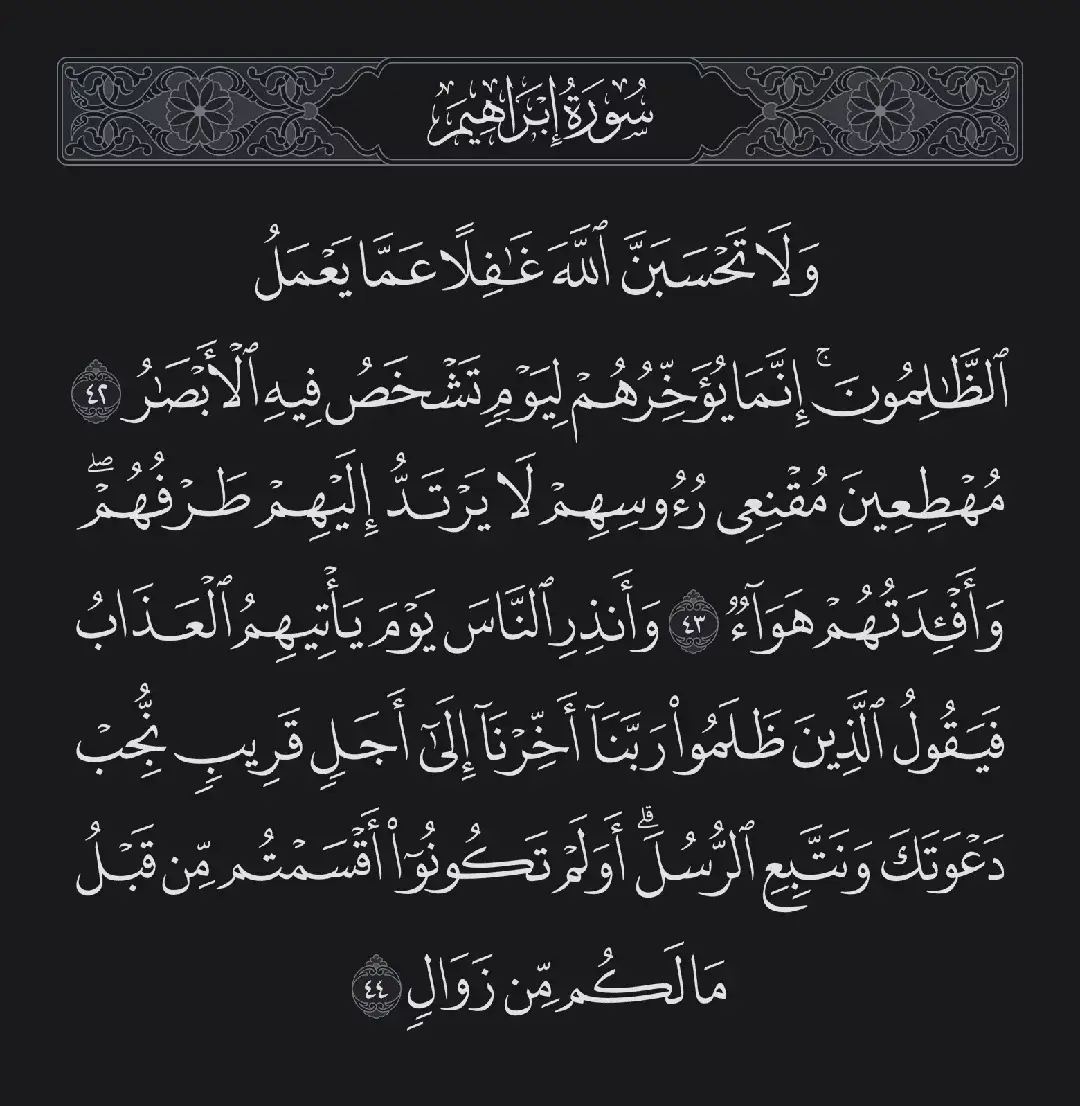 سُورَةُ إِبْرَاهِيمَ
وَلَا تَحْسَبَنَّ ٱللَّهَ غَٰفِلًا عَمَّا يَعْمَلُ
ٱلظَّٰلِمُونَۚ إِنَّمَا يُؤَخِّرُهُمْ لِيَوْمٍ تَشْخَصُ فِيهِ ٱلْأَبْصَٰرُ ٤٢
مُهْطِعِينَ مُقْنِعِى رُءُوسِهِمْ لَا يَرْتَدُّ إِلَيْهِمْ طَرْفُهُمْۖ
وَأَفْـِٔدَتُهُمْ هَوَآءٌ ٤٣ وَأَنذِرِ ٱلنَّاسَ يَوْمَ يَأْتِيهِمُ ٱلْعَذَابُ
فَيَقُولُ ٱلَّذِينَ ظَلَمُوا۟ رَبَّنَآ أَخِّرْنَآ إِلَىٰٓ أَجَلٍ قَرِيبٍ نُّجِبْ
دَعْوَتَكَ وَنَتَّبِعِ ٱلرُّسُلَۗ أَوَلَمْ تَكُونُوٓا۟ أَقْسَمْتُم مِّن قَبْلُ
مَا لَكُم مِّن زَوَالٍ ٤٤